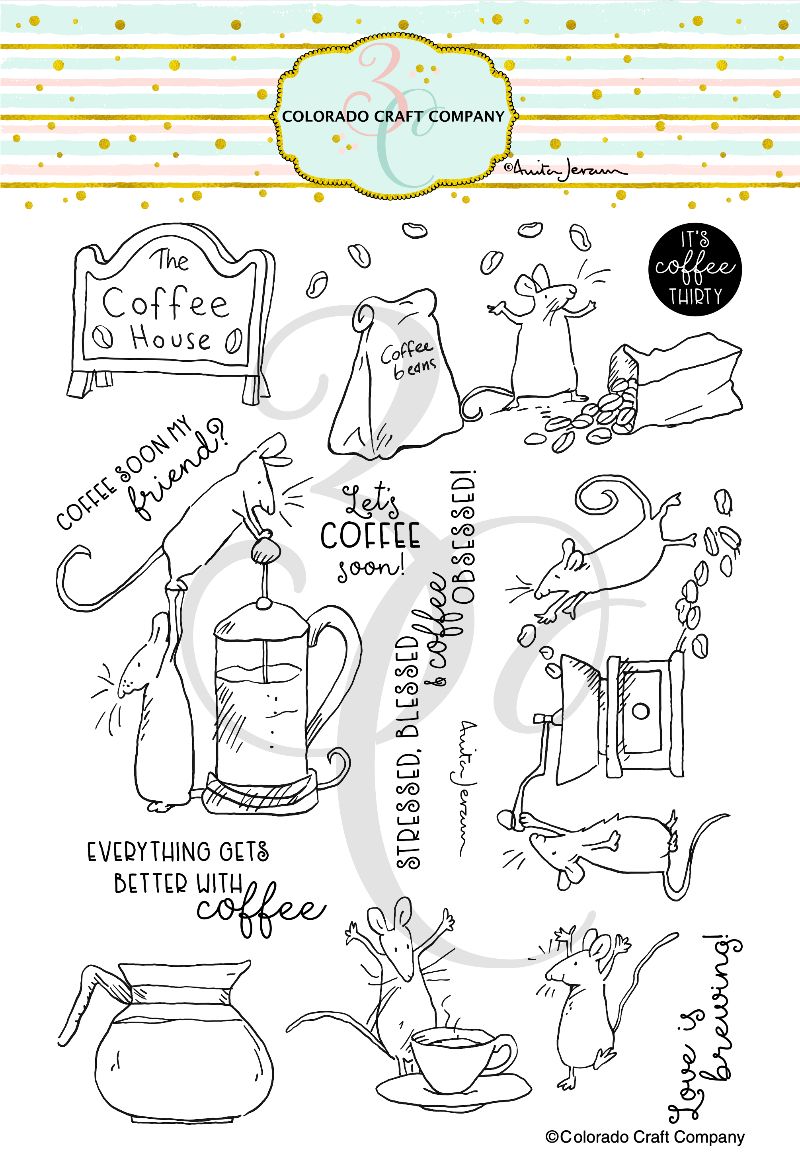 3C
COLORADO CRAFT COMPANY
©Anita Jeram
The
Coffee
House
Coffee
beans
IT'S
coffee
THIRTY
COFFEE SOON MY
friend?
Let's
COFFEE
soon!
STRESSED, BLESSED
& coffee
OBSESSED!
Anita Jeram
EVERYTHING GETS
BETTER WITH
coffee
Love is
brewing!
3C
©Colorado Craft Company